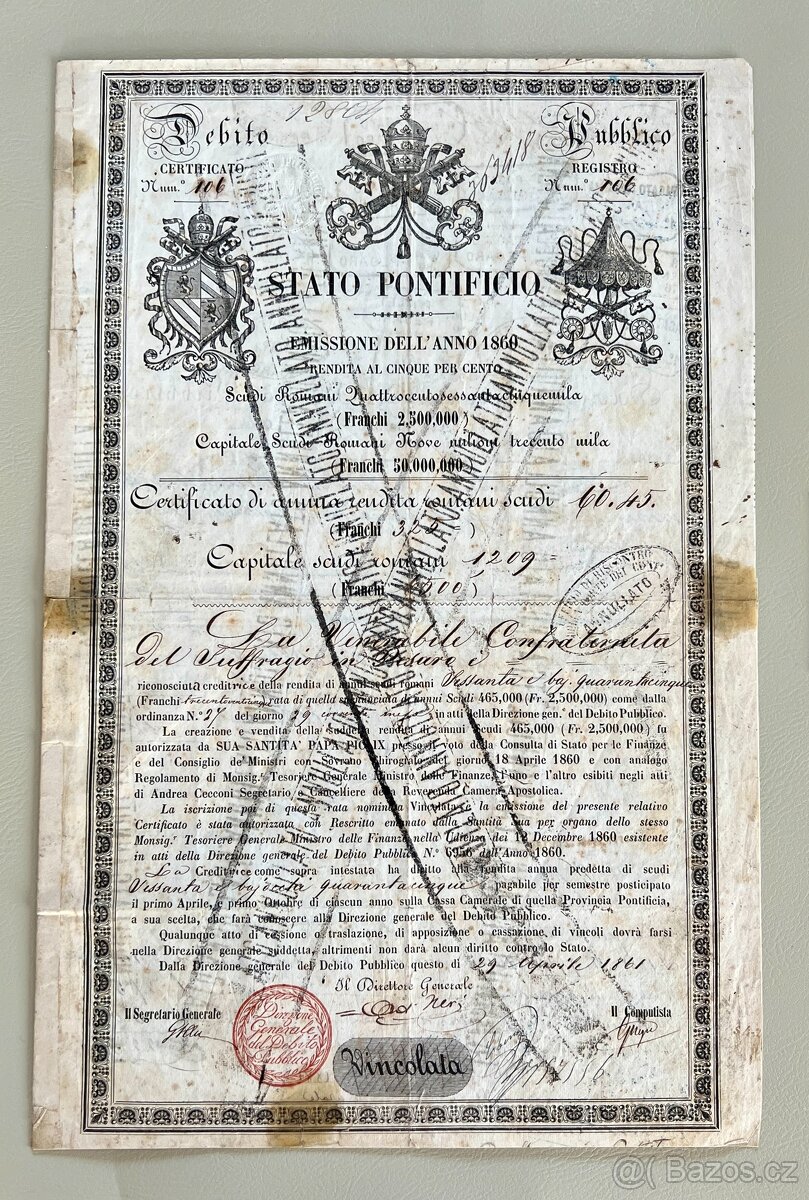 Debito Pubblico
CERTIFICATO REGISTRO
Num.º 106 Num.º 106
STATO PONTIFICIO
EMISSIONE DELL'ANNO 1860
RENDITA AL CINQUE PER CENTO
Scudi Romani Quattrocentosessantacinquemila
(Franchi 2,500,000)
Capitale Scudi Romani Nove milioni trecento mila
(Franchi 50,000,000)
Certificato di annua rendita romani scudi 60.45.
(Franchi 325)
Capitale scudi romani 1209 =
(Franchi 6500)
ANNULLATO
La Venerabile Confraternita
del Suffragio in Pesaro è
riconosciuta creditrice della rendita di annui scudi romani Sessanta e baj. quarantacinque
(Franchi trecentoventicinque) rata di quella summentovata di annui Scudi 465,000 (Fr. 2,500,000) come dalla
ordinanza N.º 27 del giorno 29 corrente mese in atti della Direzione gen.ˡ del Debito Pubblico.
La creazione e vendita della suddetta rendita di annui scudi 465,000 (Fr. 2,500,000) fu
autorizzata da SUA SANTITA' PAPA PIO IX presso il voto della Consulta di Stato per le Finanze
e del Consiglio de' Ministri con Sovrano Chirografo del giorno 18 Aprile 1860 e con analogo
Regolamento di Monsig.ʳ Tesoriere Generale Ministro delle Finanze, l'uno e l'altro esibiti negli atti
di Andrea Cecconi Segretario e Cancelliere della Reverenda Camera Apostolica.
La iscrizione poi di questa rata nominale Vincolata e la emissione del presente relativo
Certificato è stata autorizzata con Rescritto emanato dalla Santità Sua per organo dello stesso
Monsig.ʳ Tesoriere Generale Ministro delle Finanze nella Udienza del 12 Decembre 1860 esistente
in atti della Direzione generale del Debito Pubblico N.º 6956 dell'Anno 1860.
La Creditrice come sopra intestata ha diritto alla rendita annua predetta di scudi
Sessanta e bajocchi quarantacinque pagabile per semestre posticipato
il primo Aprile, e primo Ottobre di ciascun anno sulla Cassa Camerale di quella Provincia Pontificia,
a sua scelta, che farà conoscere alla Direzione generale del Debito Pubblico.
Qualunque atto di cessione o traslazione, di apposizione o cassazione di vincoli dovrà farsi
nella Direzione generale suddetta, altrimenti non darà alcun diritto contro lo Stato.
Dalla Direzione generale del Debito Pubblico questo dì 29 Aprile 1861
Il Direttore Generale
Il Segretario Generale Il Computista
Direzione
Generale
del Debito
Pubblico
Vincolata
@ Bazos.cz